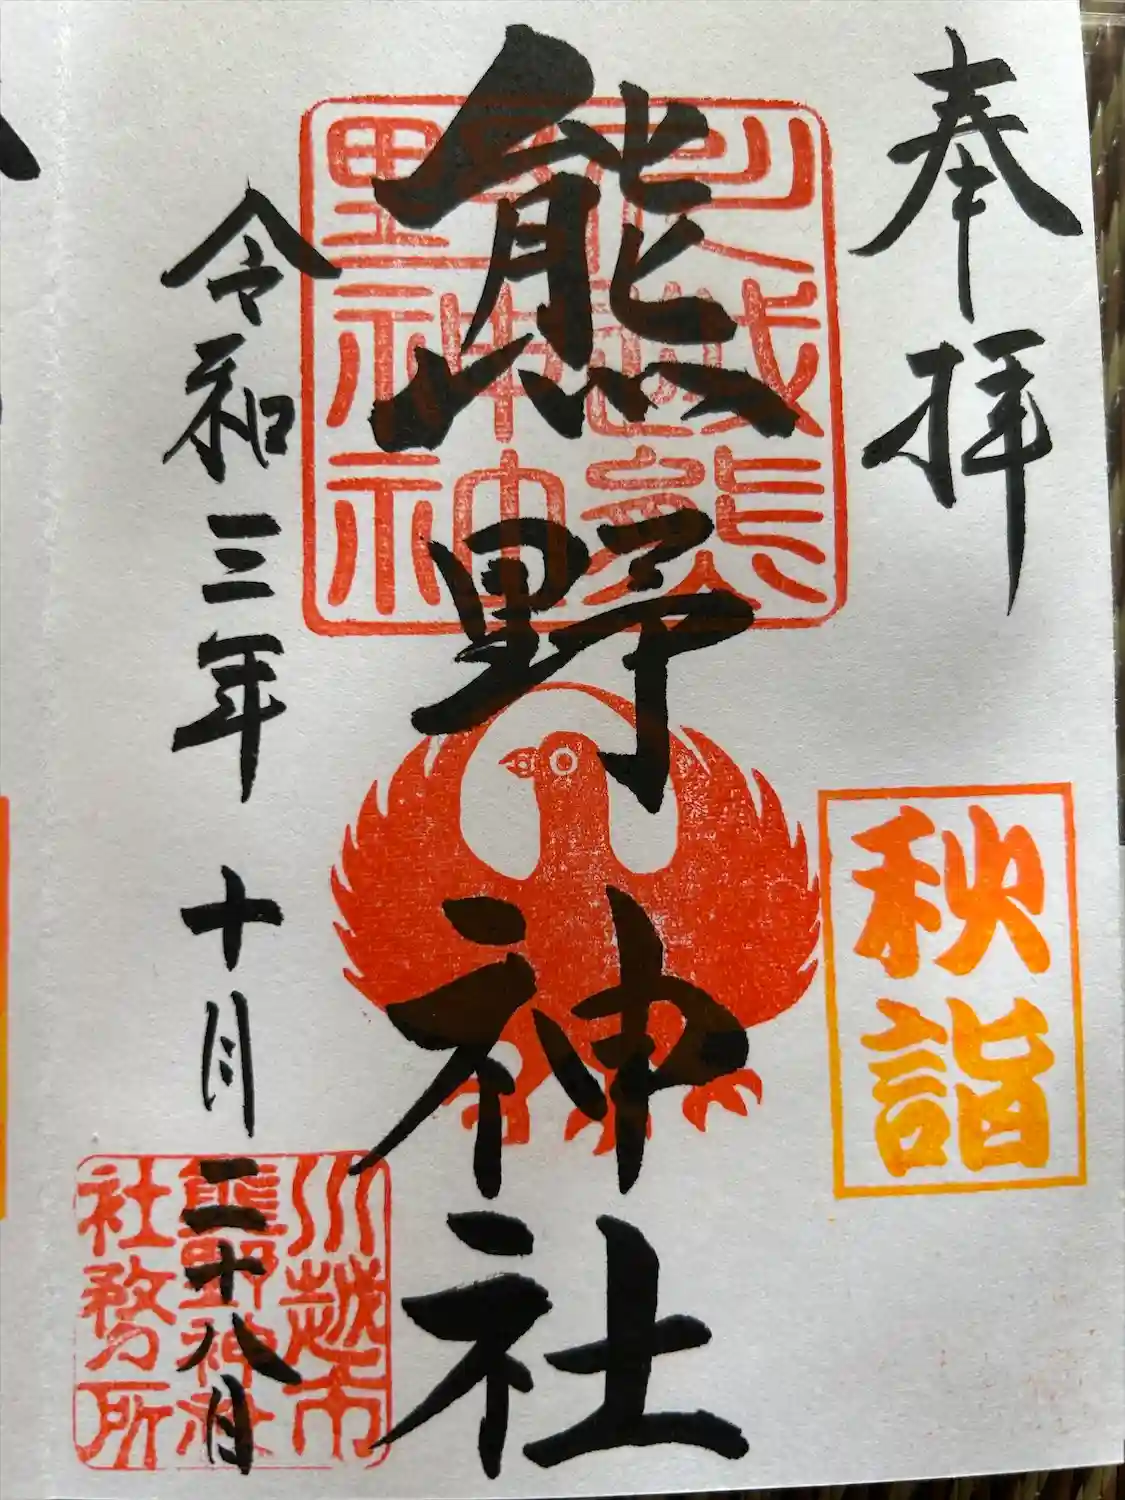 奉拝
秋詣
熊野神社
川越熊野神社
令和三年十月二十八日
川越市熊野神社社務所